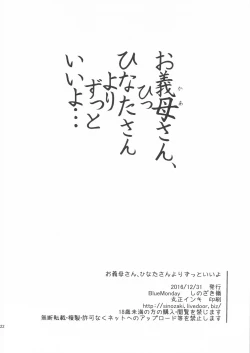 お義母さん、
かあ
ひなたさん
ひつ
より
ずっと
いいよ…
お義母さん、ひなたさんよりずっといいよ
2018/12/31 発行
BlueMonday しのざき嶺
丸正インキ 印刷
http://sinozaki.livedoor.biz/
18歳未満の方の購入・閲覧を禁じます
無断転載・複製・許可なくネットへのアップロード等を禁止します
22